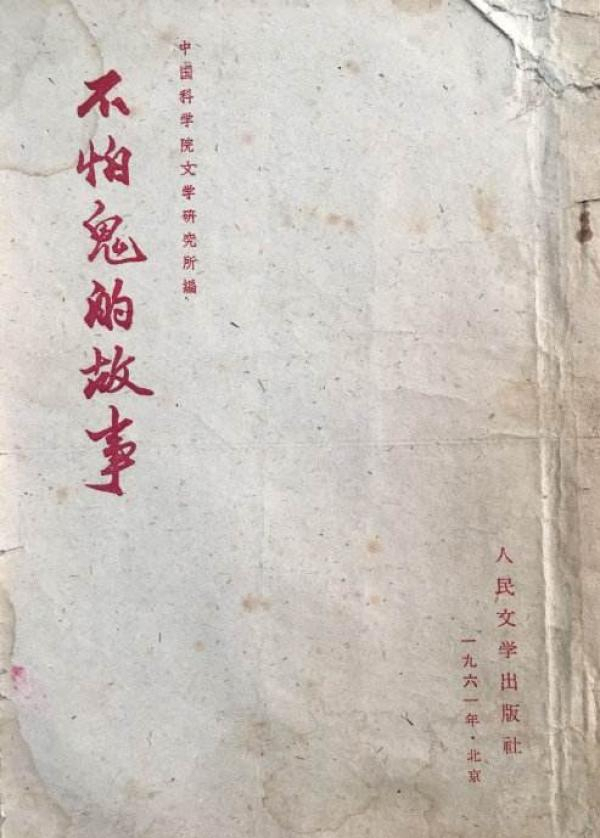 中国科学院文学研究所編
不怕鬼的故事
人民文学出版社
一九六一年·北京